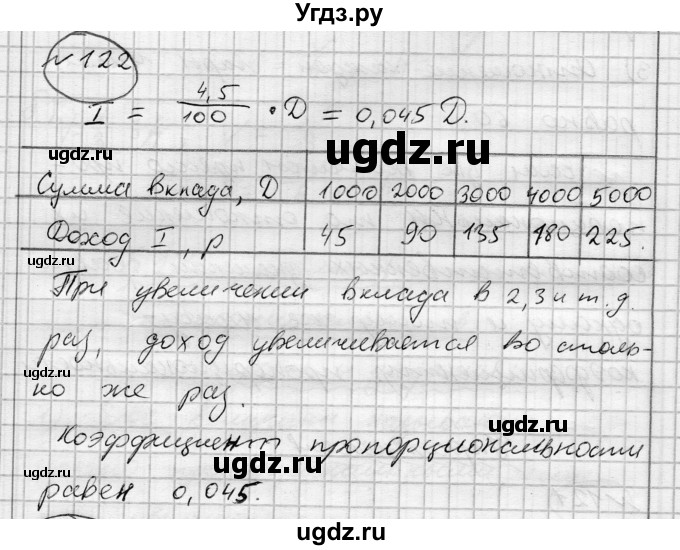 Угдз.ру
№ 122
I = 4,5/100 · D = 0,045 D.
Сумма вклада, D 1000 2000 3000 4000 5000
Доход I, р 45 90 135 180 225.
При увеличении вклада в 2,3 и т.д.
раз, доход увеличивается во столь-
ко же раз.
Коэффициент пропорциональности
равен 0,045.
ugdz.ru
ugdz.ru
ugdz.ru
ugdz.ru
ugdz.ru
ugdz.ru
ugdz.ru
ugdz.ru
ugdz.ru
ugdz.ru
ugdz.ru
ugdz.ru